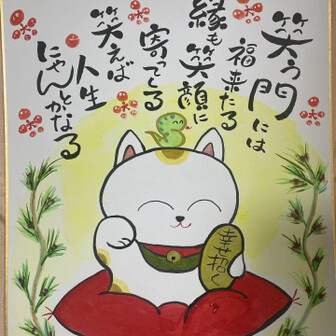 笑う門には
福来たる
縁も笑顔に
寄ってくる
笑えば
人生
にゃんとかなる
幸せ招く